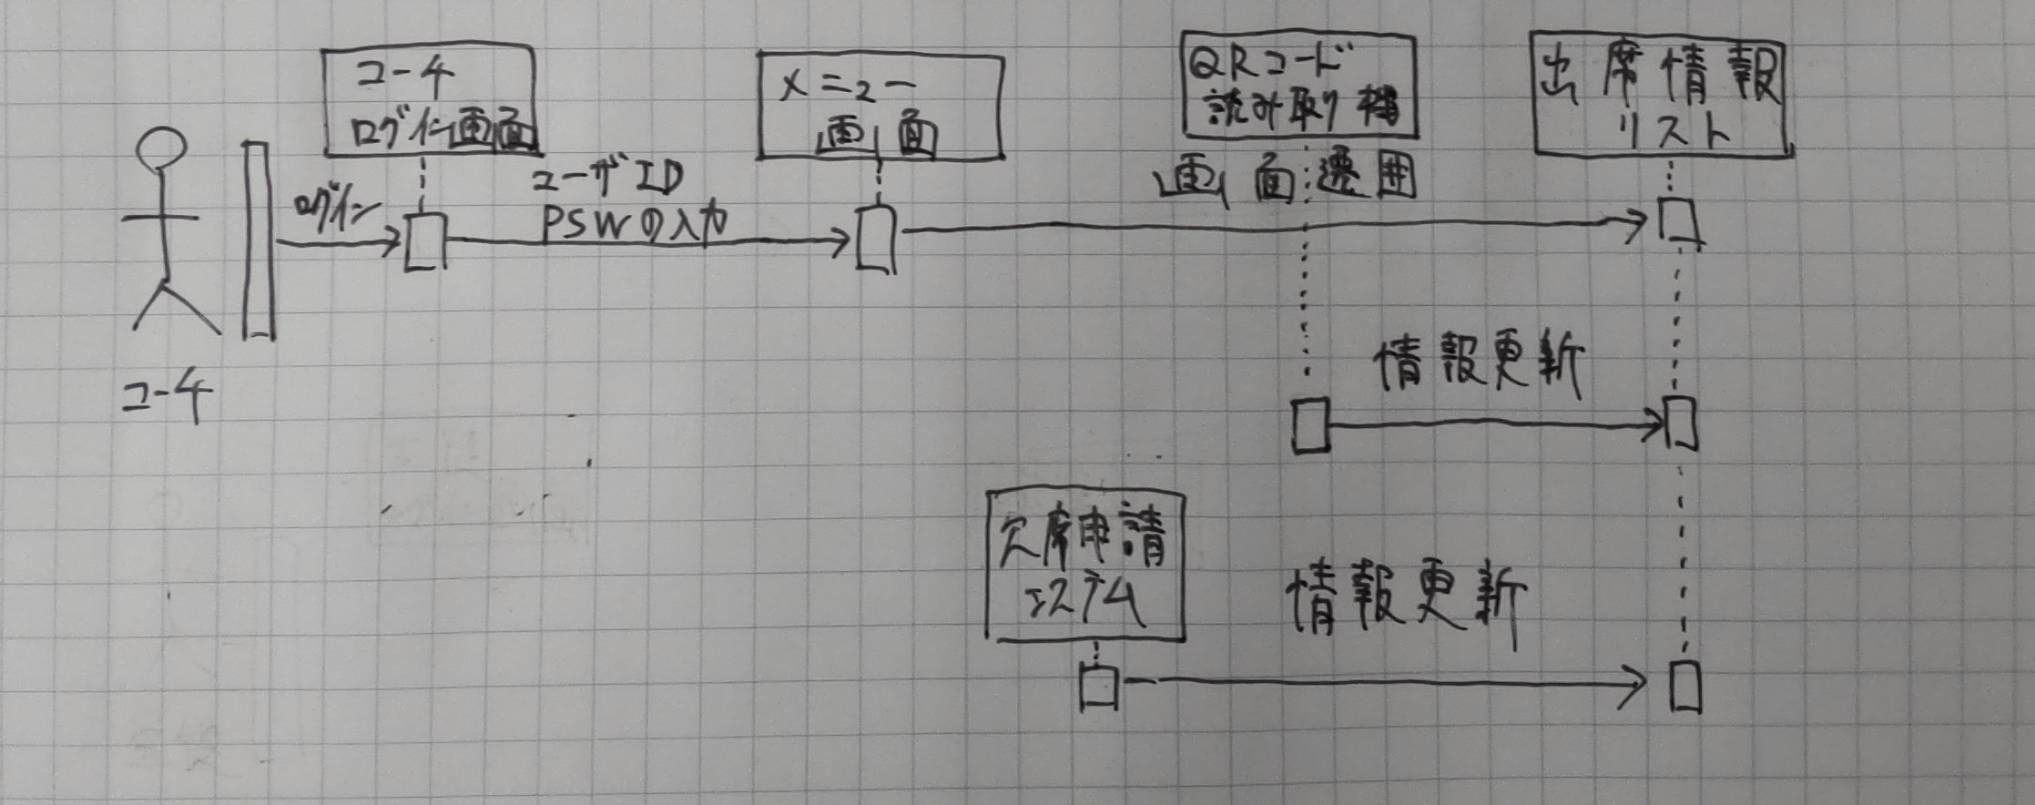 コーチ
ログイン画面
メニュー
画面
QRコード
読み取り機
出席情報
リスト
ログイン
ユーザID
PSWの入力
画面遷囲
コーチ
情報更新
欠席申請
システム
情報更新